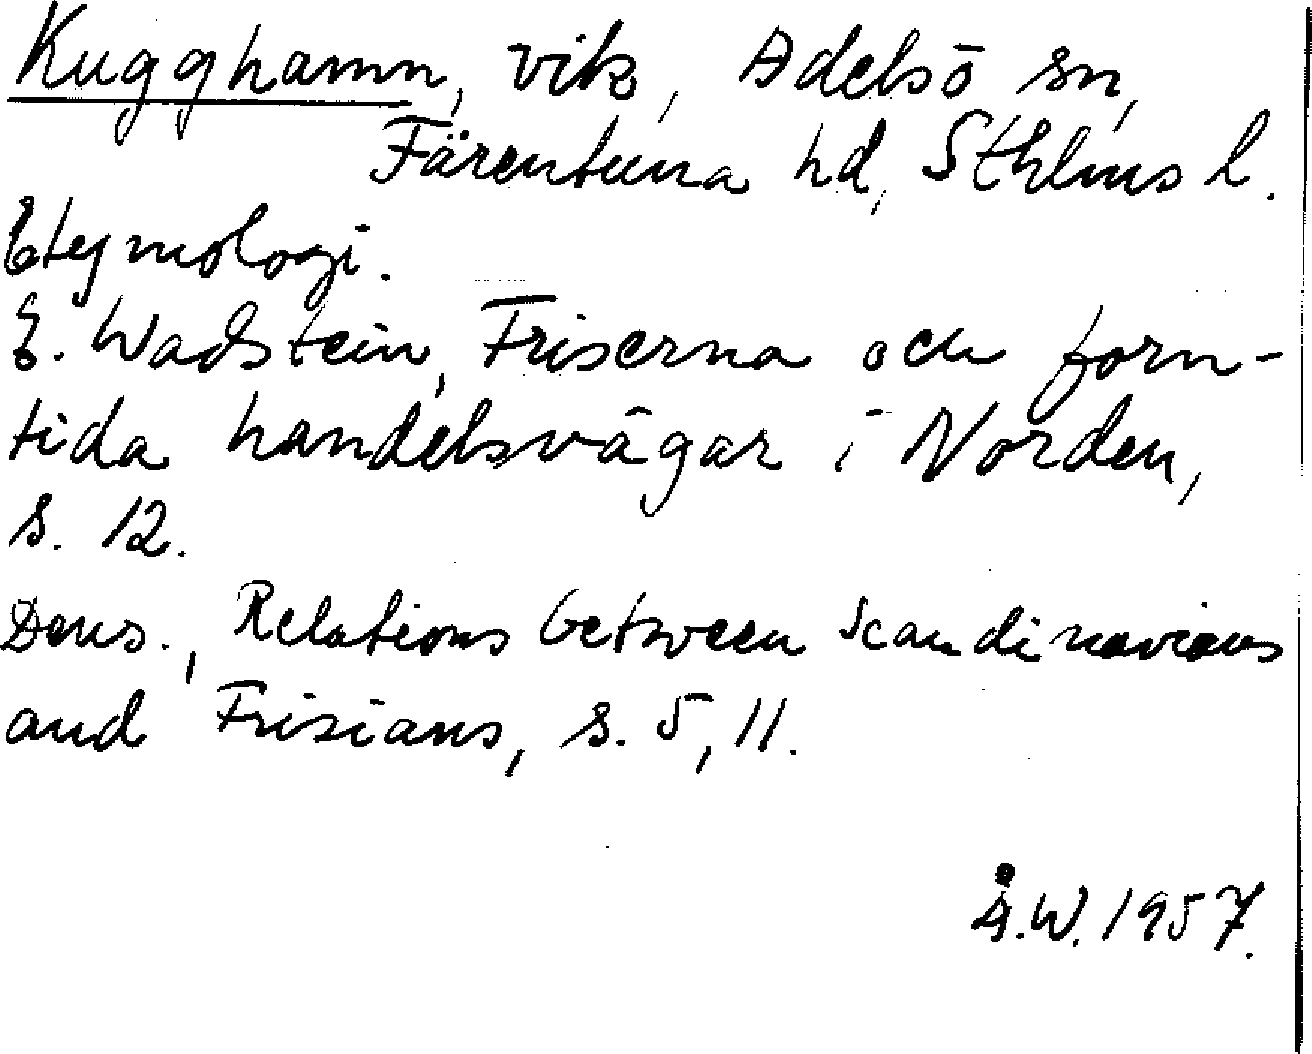 Kugghamn, vik, Adelsö sn,
Färentuna hd, Sthlms l.
Etymologi.
E. Wadstein, Friserna och forn-
tida handelsvägar i Norden,
s. 12.
Dens., Relations between Scandinavians
and Frisians, s. 5, 11.
Å.W. 1957.